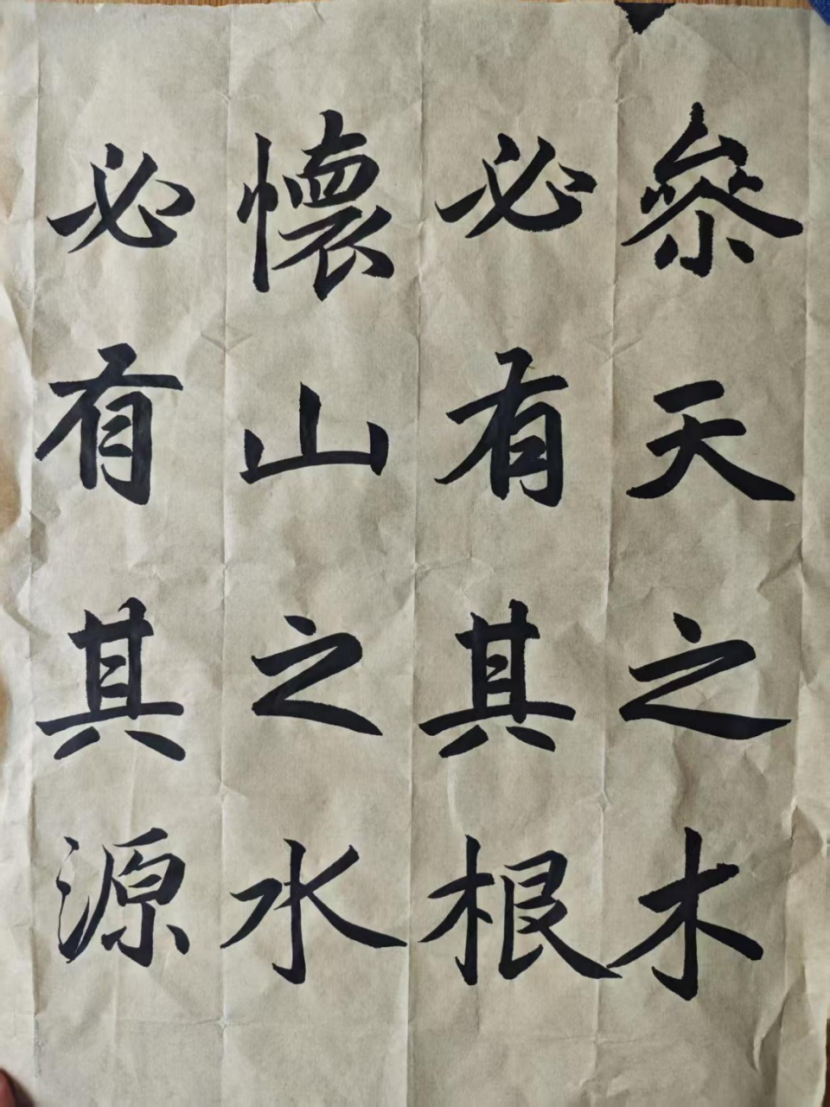 參天之木
必有其根
懷山之水
必有其源